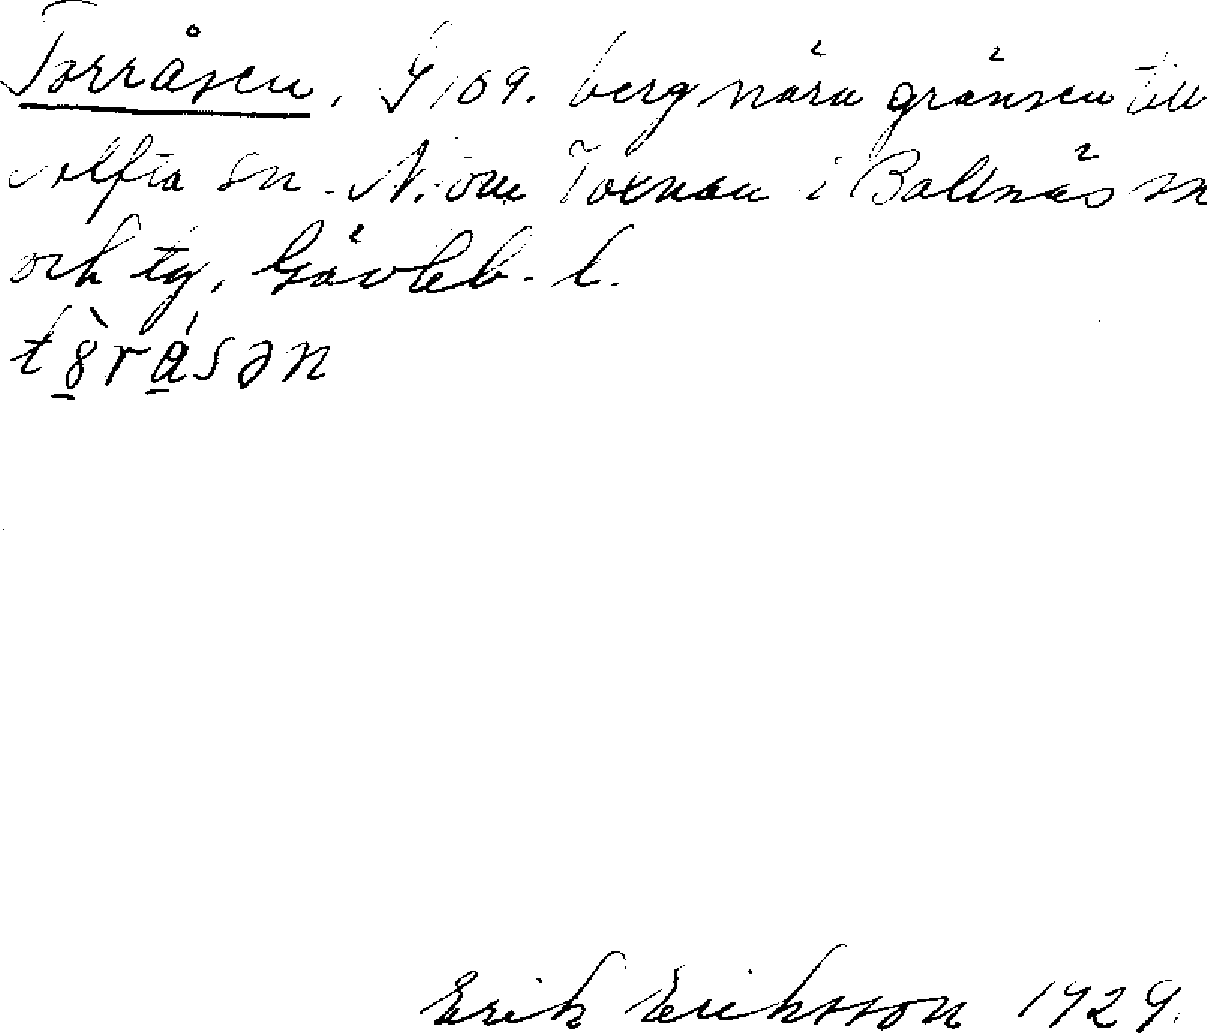 Torråsen, G 109. berg nära gränsen till
Alfta sn. N. om Toenan i Bollnäs sn
och tg, Gävleb. l.
tòrásən
Erik Eriksson 1929.